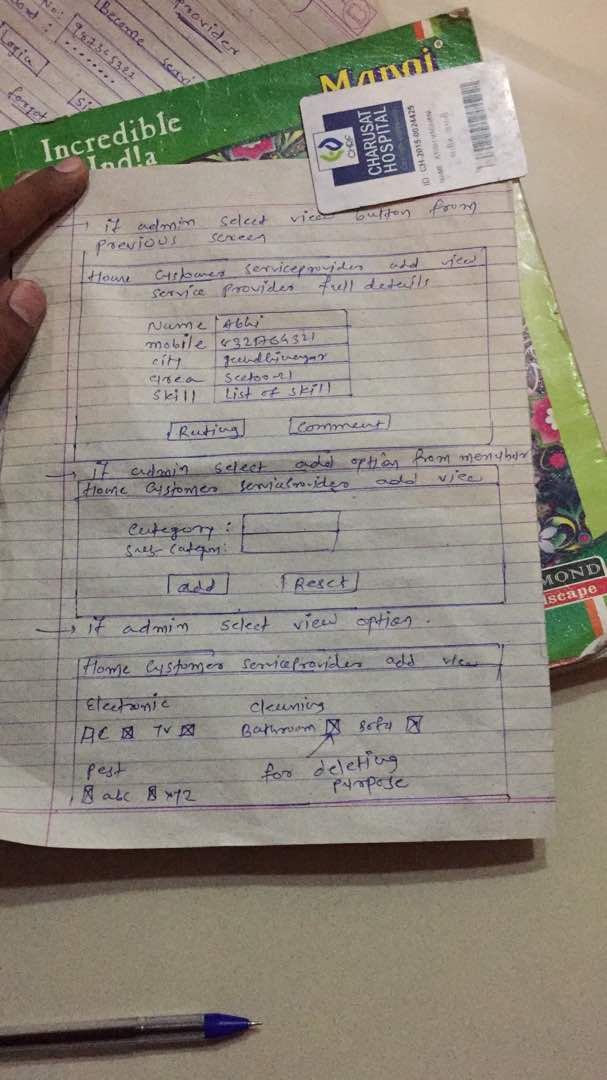 Provider
No:
Become servi
987365321
........
Login
forgot
Si
Incredible
India
Mangi
CHARUSAT
HOSPITAL
ID : CH-2015-0024425
NAME
→ if admin select view button from
previous screen
Home Customer serviceprovider add view
service provider full details
Name Abhi
mobile
city gandhinagar
area
Skill List of skill
Rating Comment
→ if admin select add option from menubar
Home Customer serviceProvider add view
Category :
Sub-Categori:
add Reset
→ if admin select view option.
Home Customer serviceProvider add view
Electronic cleaning
AC TV Bathroom Sofa
Pest for deleting
purpose
abc xyz
MOND
scape